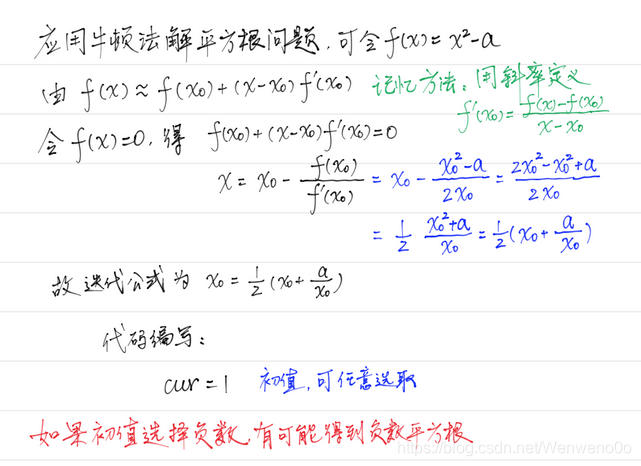 应用牛顿法解平方根问题,可令f(x)=x²-a
由 f(x)≈f(x₀)+(x-x₀)f'(x₀) 记忆方法:用斜率定义
f'(x₀)=\frac{f(x)-f(x₀)}{x-x₀}
令f(x)=0,得 f(x₀)+(x-x₀)f'(x₀)=0
x=x₀-\frac{f(x₀)}{f'(x₀)}=x₀-\frac{x₀²-a}{2x₀}=\frac{2x₀²-x₀²+a}{2x₀}
=\frac{1}{2}\frac{x₀²+a}{x₀}=\frac{1}{2}(x₀+\frac{a}{x₀})
故迭代公式为 x₀=\frac{1}{2}(x₀+\frac{a}{x₀})
代码编写:
cur=1 初值,可任意选取
如果初值选择负数,有可能得到负数平方根
https://blog.csdn.net/Wenweno0o